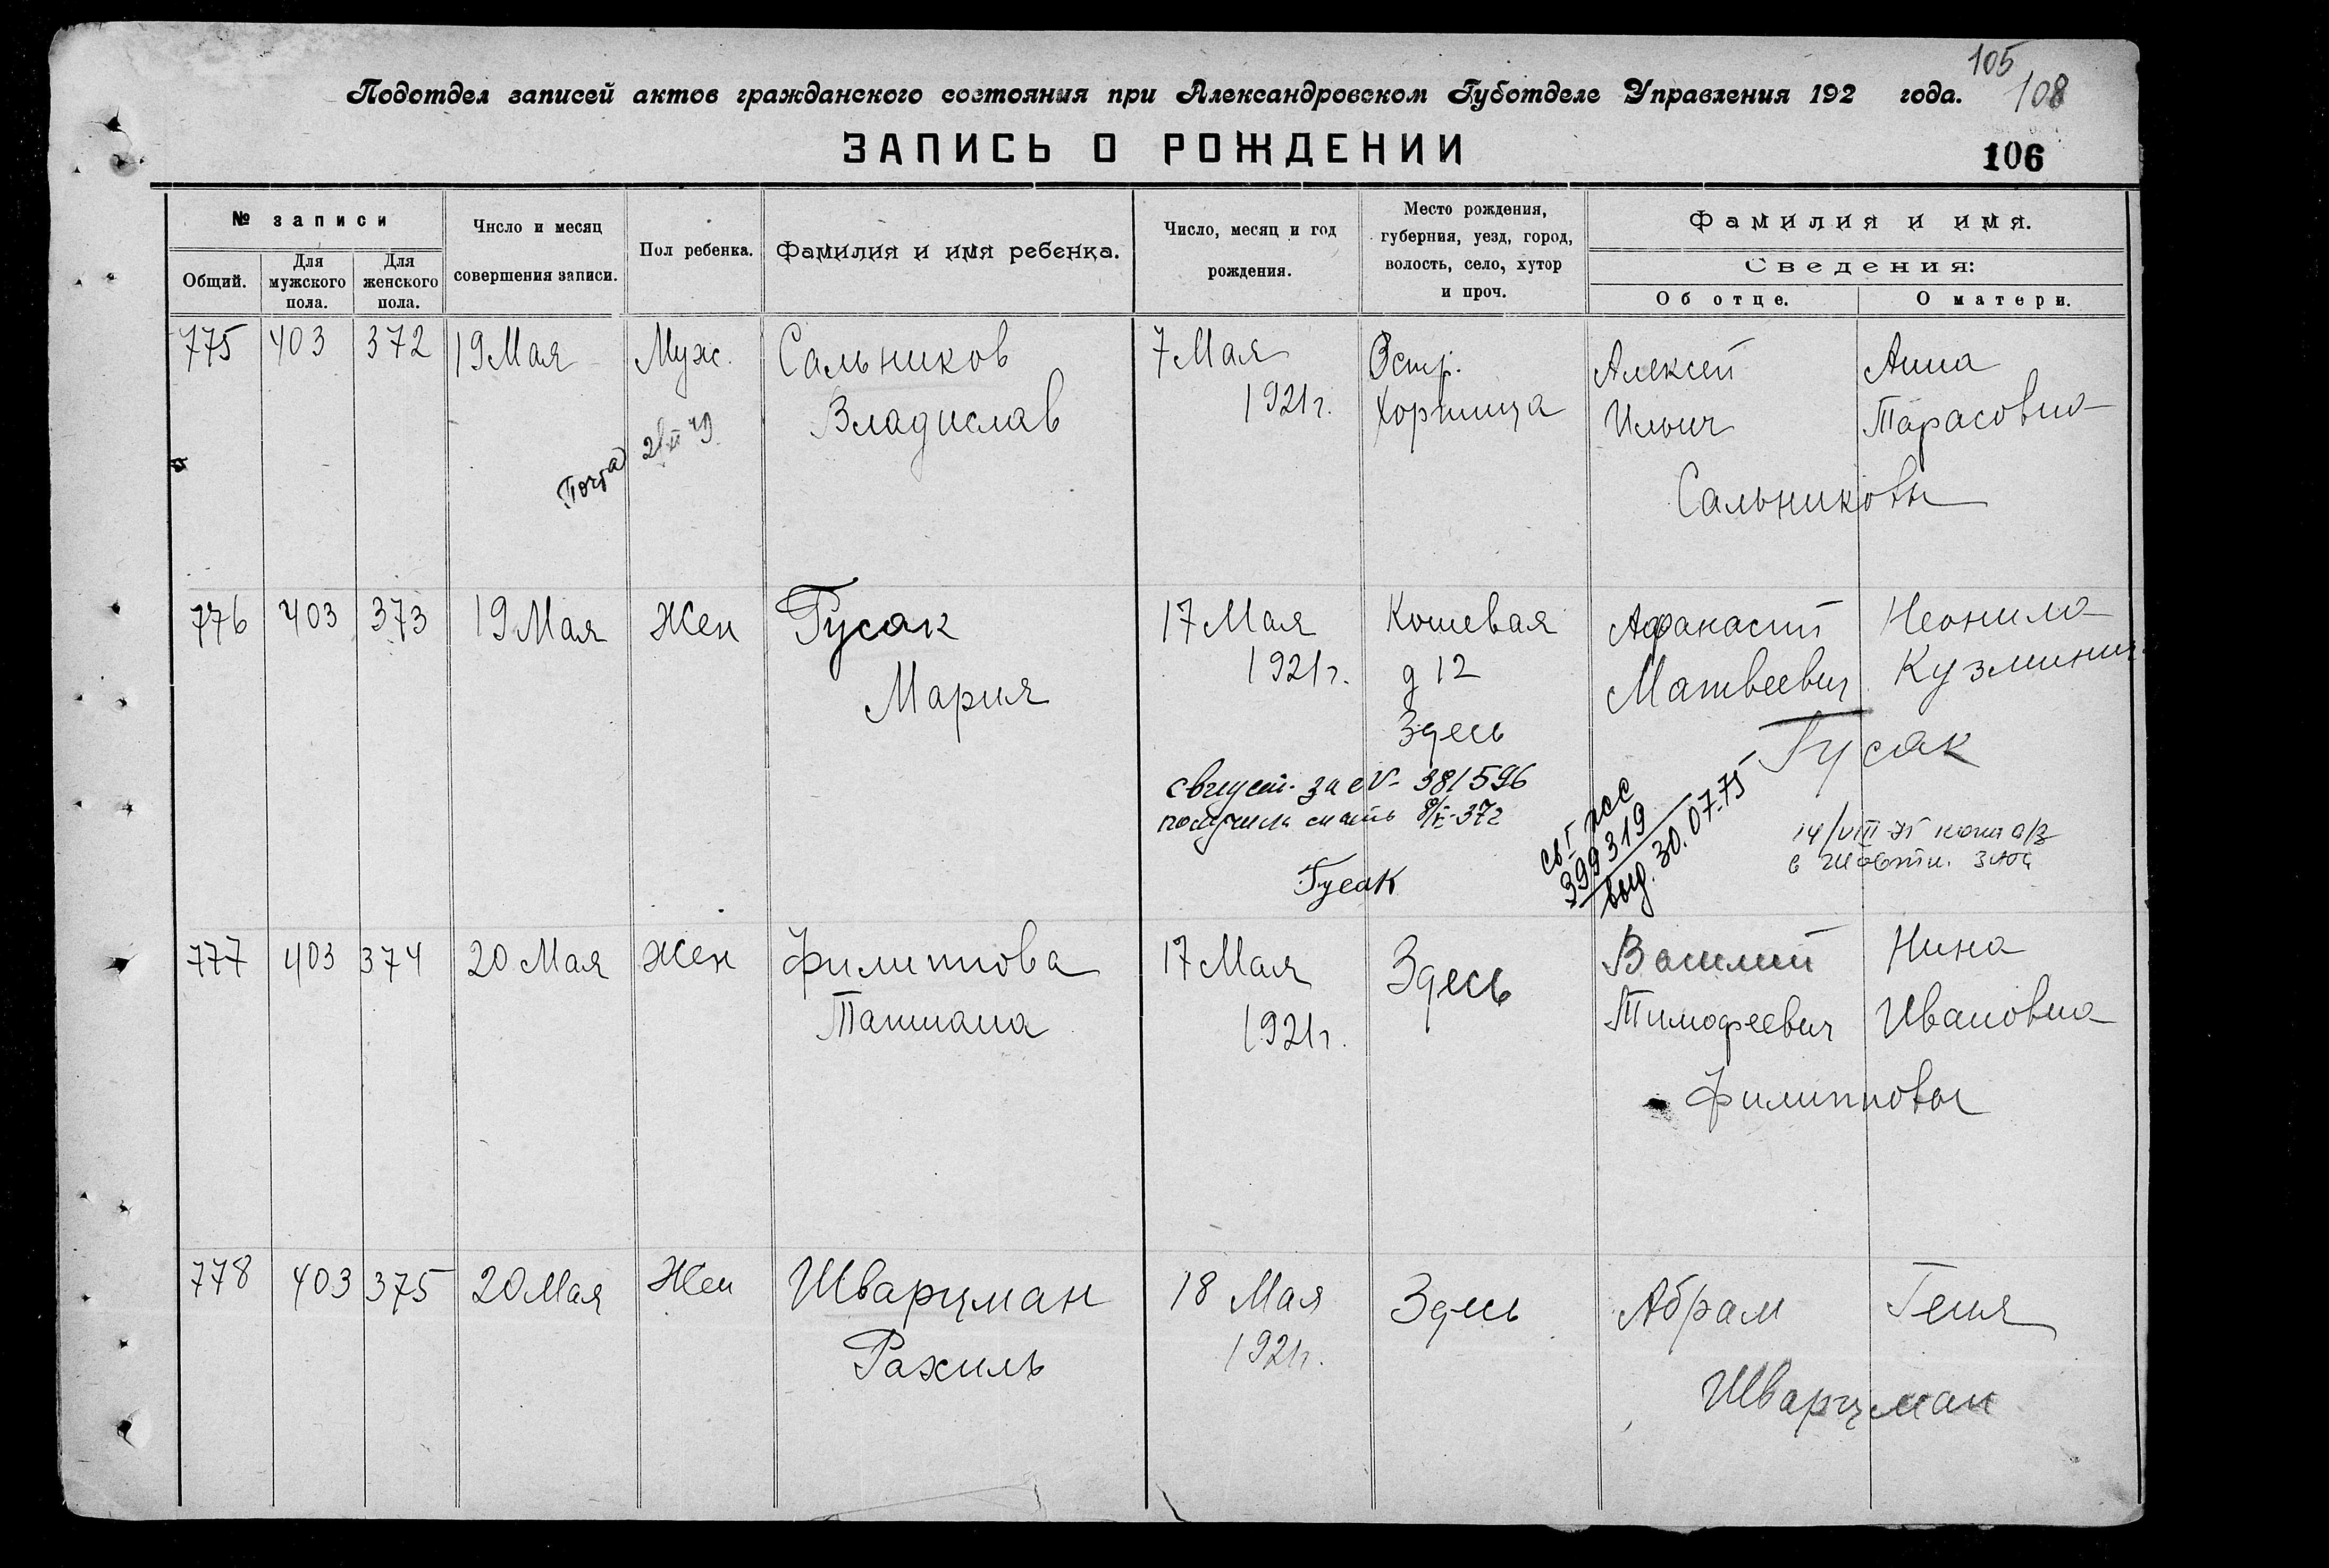 105
108
Подотдел записей актов гражданского состояния при Александровском Губотделе Управления 192 года.
ЗАПИСЬ О РОЖДЕНИИ
106
№ записи
Общий.
Для мужского пола.
Для женского пола.
Число и месяц совершения записи.
Пол ребенка.
Фамилия и имя ребенка.
Число, месяц и год рождения.
Место рождения, губерния, уезд, город, волость, село, хутор и проч.
Фамилия и имя.
Сведения:
Об отце.
О матери.
775 403 372 19 Мая Муж. Сальников 7 Мая Остр. Алексей Анна
Владислав 1921г. Хортица Ильич Тарасовна
Сальниковы
776 403 373 19 Мая Жен Гусак 17 Мая Кошевая Афанасий Неонила
Мария 1921г. д 12 Матвеевич Кузминич
Здесь
Гусак
за № 381596
получила
Гусак
399319
выд. 30.07.75
777 403 374 20 Мая Жен Филиппова 17 Мая Здесь Василий Нина
Татиана 1921г. Тимофеевич Ивановна
Филипповы
778 403 375 20 Мая Жен Шварцман 18 Мая Здесь Абрам Геня
Рахиль 1921г.
Шварцман